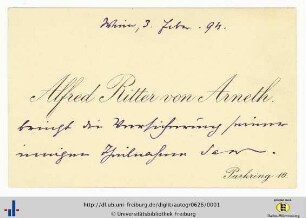 Wien, 3. Febr. 94.
Alfred Ritter von Arneth.
bringt die Versicherung seiner
innigen Theilnahme dar.
Parkring 10.
http://dl.ub.uni-freiburg.de/diglit/autog0628/0001
© Universitätsbibliothek Freiburg